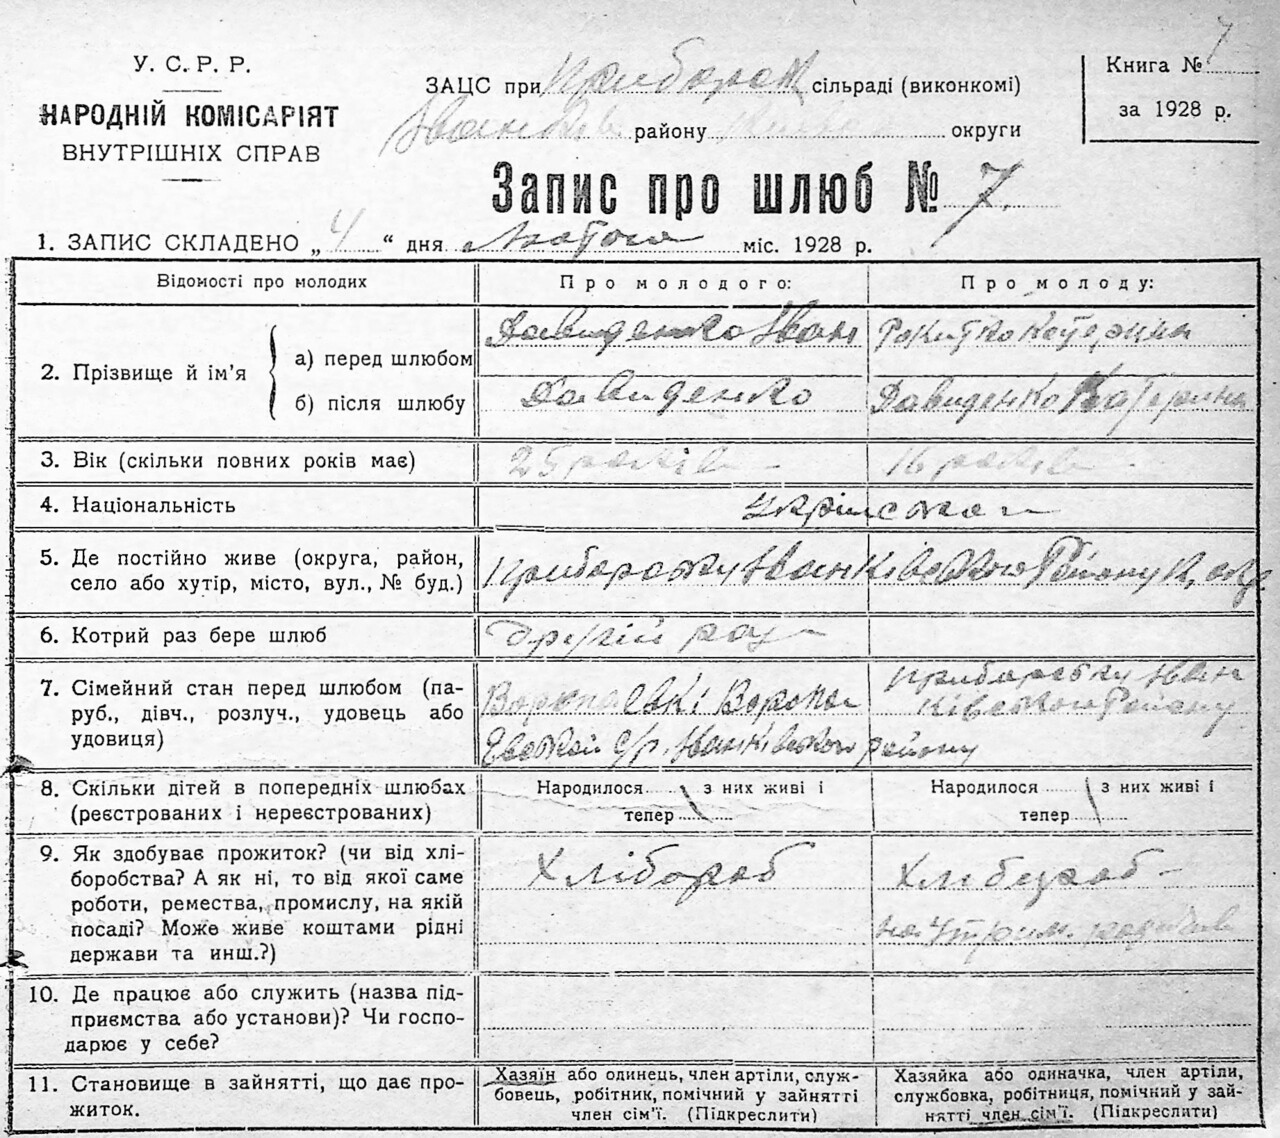 7
У. С. Р. Р.
НАРОДНІЙ КОМІСАРІЯТ
ВНУТРІШНІХ СПРАВ
ЗАЦС при сільраді (виконкомі)
району округи
Книга №
за 1928 р.
Запис про шлюб № 7.
1. ЗАПИС СКЛАДЕНО „ 4 “ дня Лютого міс. 1928 р.
Відомості про молодих
Про молодого:
Про молоду:
2. Прізвище й ім'я
а) перед шлюбом
Давиденко Іван
Катерина
б) після шлюбу
Давиденко
Давиденко Катерина
3. Вік (скільки повних років має)
25 років –
16 років –
4. Національність
5. Де постійно живе (округа, район,
село або хутір, місто, вул., № буд.)
Іванківського Району К. окр
6. Котрий раз бере шлюб
другій раз
7. Сімейний стан перед шлюбом (па-
руб., дівч., розлуч., удовець або
удовиця)
Іван
ківського Району
с/р. Іванківського району
8. Скільки дітей в попередніх шлюбах
(реєстрованих і нереєстрованих)
Народилося з них живі і
тепер
Народилося з них живі і
тепер
9. Як здобуває прожиток? (чи від хлі-
боробства? А як ні, то від якої саме
роботи, ремества, промислу, на якій
посаді? Може живе коштами рідні
держави та инш.?)
Хлібороб
Хлібороб –
на утрим. родичів
10. Де працює або служить (назва під-
приємства або установи)? Чи госпо-
дарює у себе?
11. Становище в зайнятті, що дає про-
житок.
Хазяїн або одинець, член артіли, служ-
бовець, робітник, помічний у зайнятті
член сім'ї. (Підкреслити)
Хазяйка або одиначка, член артіли,
службовка, робітниця, помічний у зай-
нятті член сім'ї. (Підкреслити)